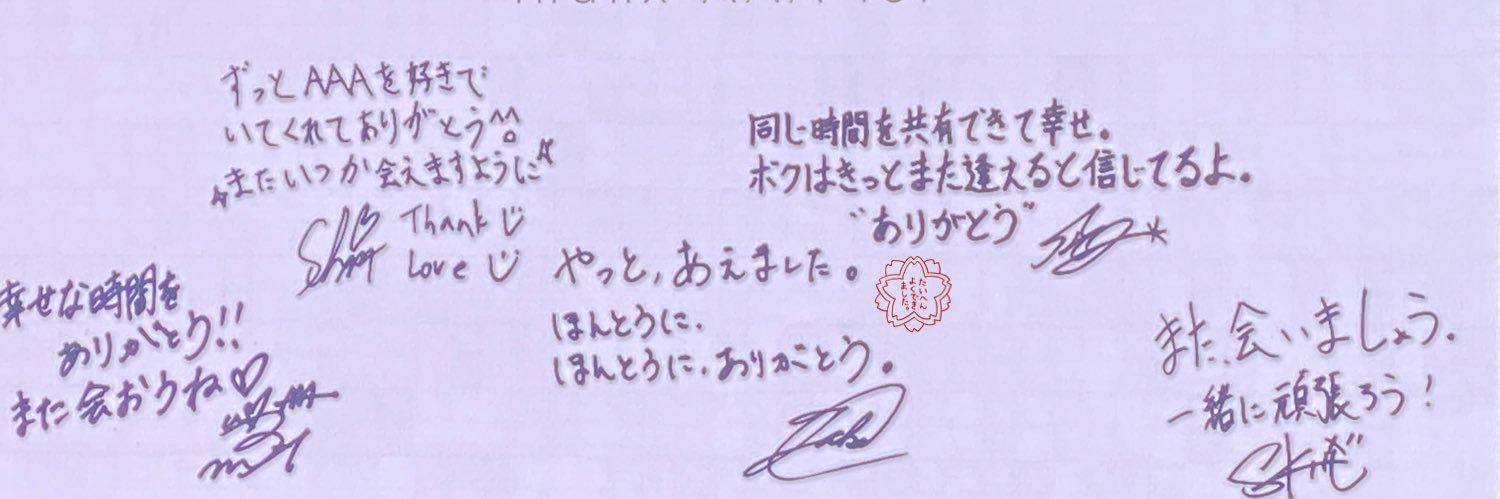 ずっとAAAを好きで
いてくれてありがとう^^。
☆またいつか会えますように☆
Thank
Love
同じ時間を共有できて幸せ。
ボクはきっとまた逢えると信じてるよ。
"ありがとう"
やっと、あえました。
ほんとうに、
ほんとうに、ありがとう。
たいへん
よくでき
ました。
幸せな時間を
ありがとう!!
また会おうね♡
また、会いましょう。
一緒に頑張ろう!